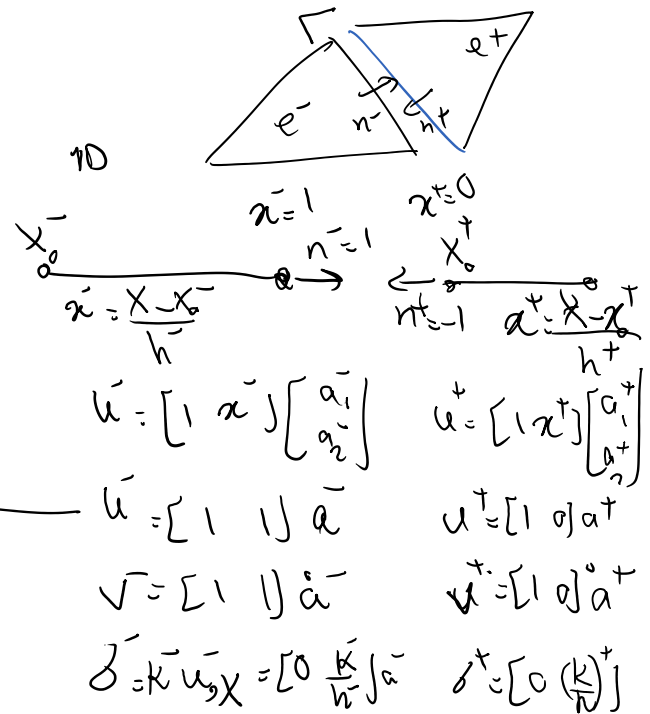 Γ
e⁺
e⁻ n⁻ n⁺
1D
x⁻=1 x⁺=0
X₀⁻ n⁻=1 X₀⁺
x⁻ = (X - X₀⁻)/h⁻ n⁺=-1 x⁺ = (X - X₀⁺)/h⁺
u⁻ = [1 x⁻] [a₁⁻ a₂⁻] u⁺ = [1 x⁺] [a₁⁺ a₂⁺]
u⁻ = [1 1] a⁻ u⁺ = [1 0] a⁺
v⁻ = [1 1] ȧ⁻ v⁺ = [1 0] ȧ⁺
σ⁻ = k⁻ u⁻,X = [0 k⁻/h⁻] a⁻ σ⁺ = [0 (k/h)⁺]